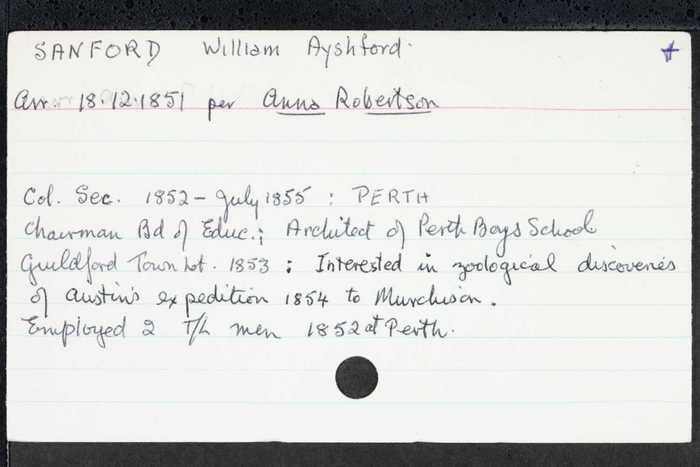 SANFORD William Ayshford.
Arr 18.12.1851 per Anna Robertson
Col. Sec. 1852 - July 1855 : PERTH
Chairman Bd of Educ.; Architect of Perth Boys School
Guildford Town Lot. 1853 ; Interested in zoological discoveries
of Austin's expedition 1854 to Murchison.
Employed 2 T/L men 1852 at Perth.